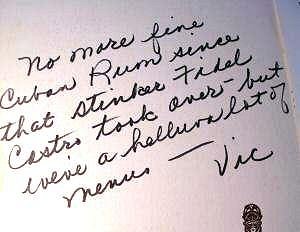 No more fine
Cuban Rum since
that stinker Fidel
Castro took over - but
weve a helluva lot of
menus — Vic